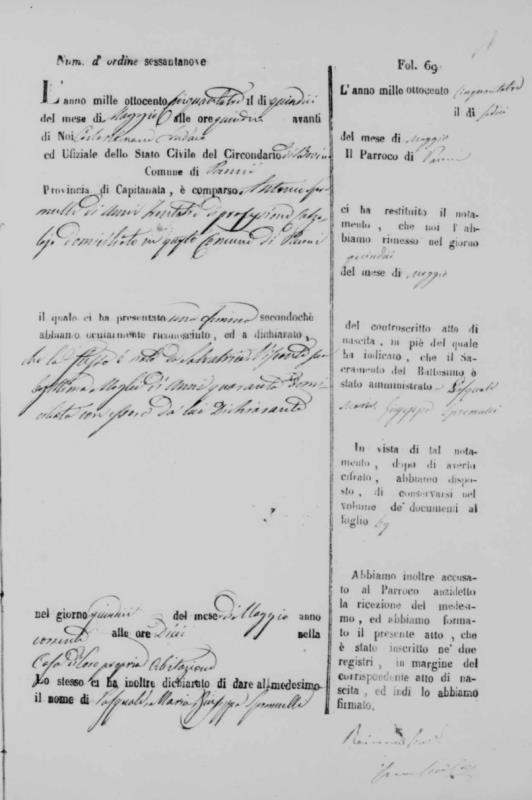 Num. d' ordine sessantanove
L'anno mille ottocento cinquantatre il di quindici
del mese di Maggio alle ore quindici avanti
di Noi Sindaco
ed Ufiziale dello Stato Civile del Circondario di Bovino
Comune di Panni
Provincia di Capitanata, è comparso Antonio
di anni trentatre di professione
domiciliato in questo Comune di Panni
il quale ci ha presentato una femina secondochè
abbiamo ocularmente riconosciuto, ed a dichiarato,
che la stessa è nata da
legittima Moglie di anni quaranta domi
ciliata con esso e da lui Dichiarante
nel giorno quindici del mese di Maggio anno
corrente alle ore Dieci nella
Casa di loro propria abitazione
Lo stesso ci ha inoltre dichiarato di dare al medesimo
il nome di Pasquale Maria Giuseppa
Fol. 69
L'anno mille ottocento cinquantatre
il di sedici
del mese di Maggio
Il Parroco di Panni
ci ha restituito il nota-
mento, che noi l'ab-
biamo rimesso nel giorno
quindici
del mese di Maggio
del controscritto atto di
nascita, in piè del quale
ha indicato, che il Sa-
cramento del Battesimo è
stato amministrato a Pasquale
Maria Giuseppa
In vista di tal nota-
mento, dopo di averlo
cifrato, abbiamo dispo-
sto, di conservarsi nel
volume de' documenti al
foglio 69
Abbiamo inoltre accusa-
to al Parroco anzidetto
la ricezione del medesi-
mo, ed abbiamo forma-
to il presente atto, che
è stato inscritto ne' due
registri, in margine del
corrispondente atto di na-
scita, ed indi lo abbiamo
firmato.